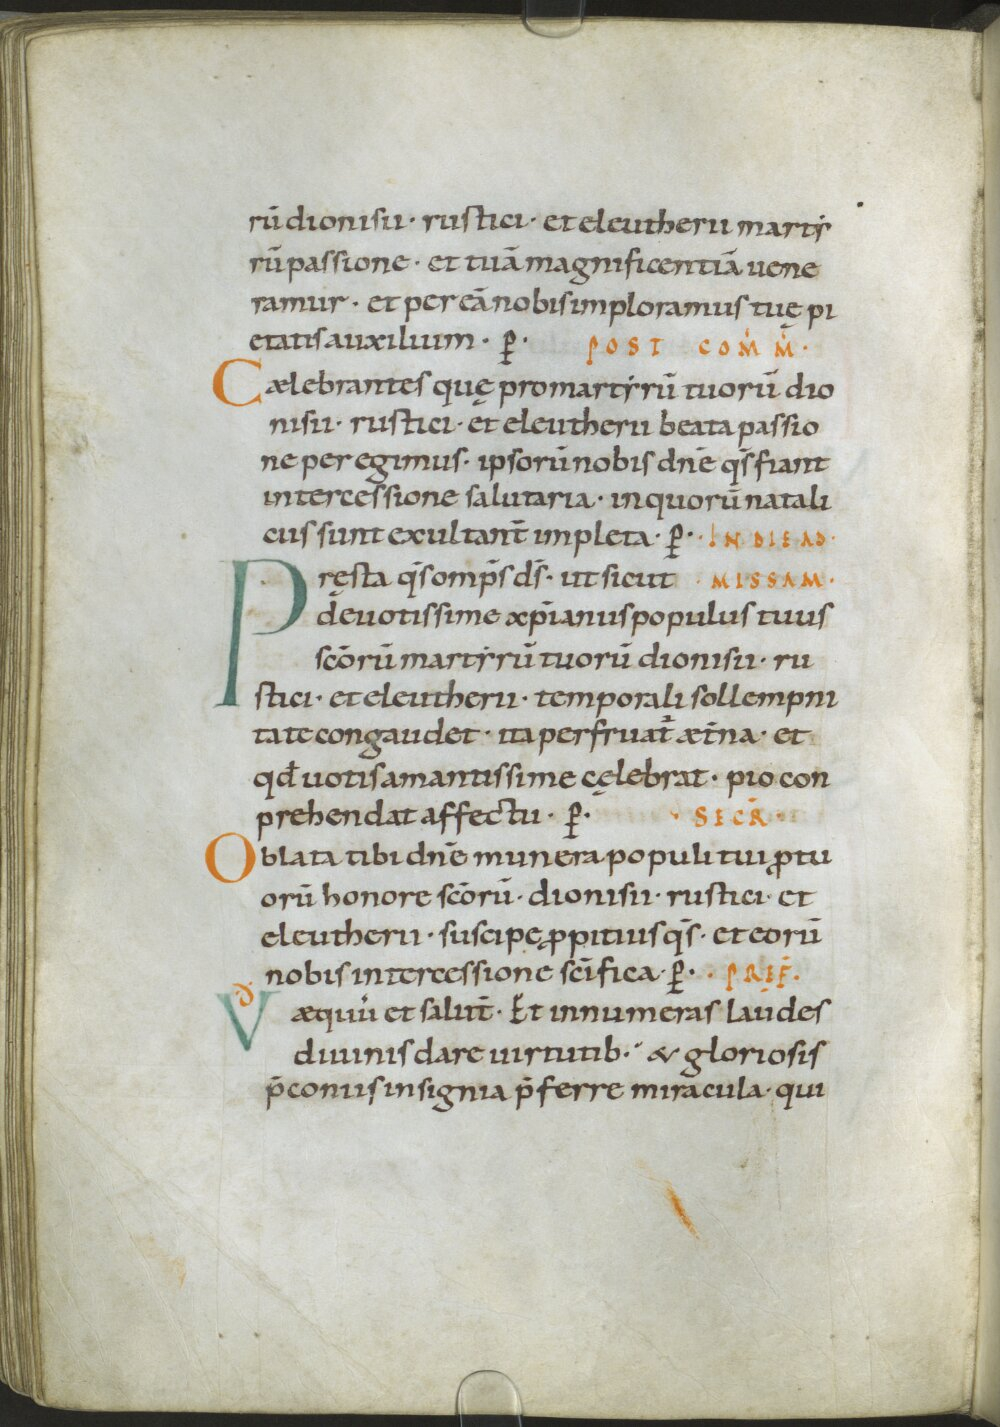 rū dionisii · rustici · et eleutherii martẏ
rū passione · et tuā magnificentiā uene
ramur · et per eā nobis imploramus tuę pi
etatis auxilium · p̲ · POST COM̄ M̄ ·
Cælebrantes quę pro martẏrū tuorū dio
nisii · rustici · et eleutherii beata passio
ne peregimus · ipsorū nobis dn̄e qs̄ fiant
intercessione salutaria · in quorū natali
ciis sunt exultant̄ impleta · p̲ · · IN DIE AD ·
Pręsta qs̄ omp̄s ds̄ · ut sicut · MISSAM ·
deuotissime xp̄ianus populus tuus
scōrū martẏrū tuorū dionisii · ru
stici · et eleutherii · temporali sollempni
tate congaudet · ita perfruat̄ æt̄na · et
qđ uotis amantissime cęlebrat · pio con
prehendat affectu · p̲ · · SECR̄ ·
Oblata tibi dn̄e munera populi tui ꝓ tu
orū honore scōrū · dionisii · rustici · et
eleutherii · suscipe ꝓpitius qs̄ · et eorū
nobis intercessione scīfica · p̲ · · PREF̄ ·
VD æquū et salut̄ · Et innumeras laudes
diuinis dare uirtutib · & gloriosis
p̄coniis insignia p̄ferre miracula · qui